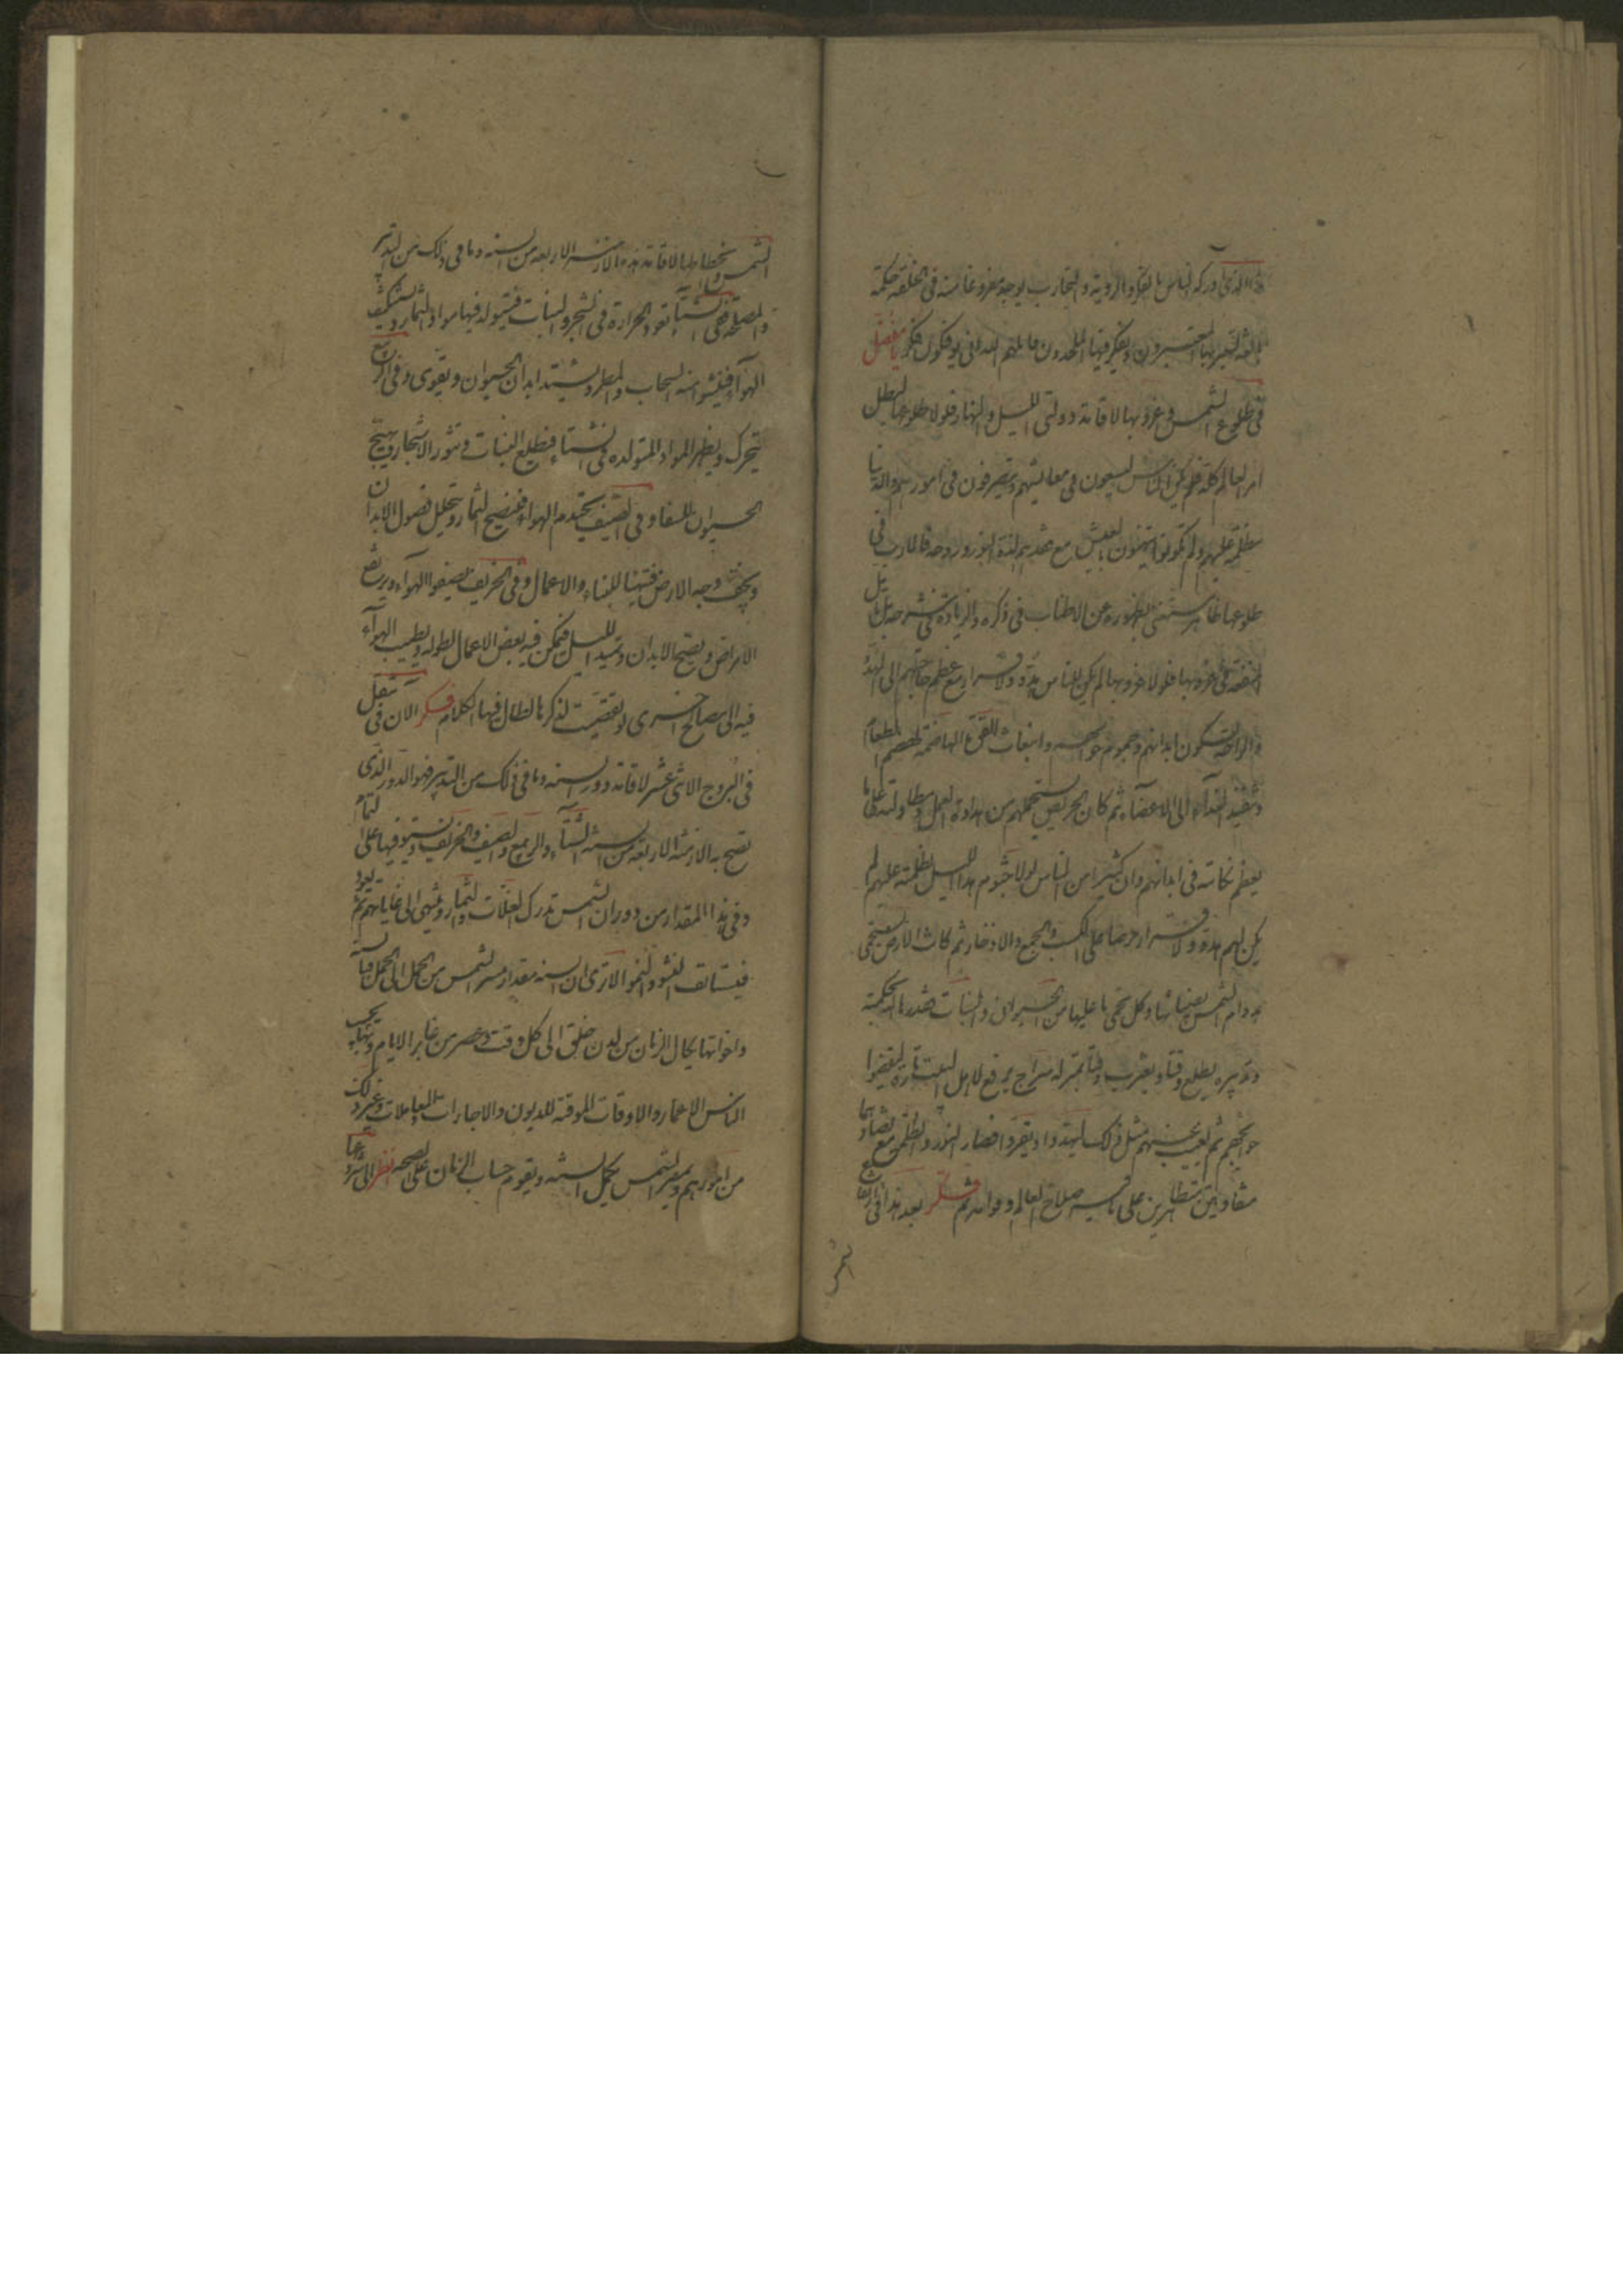 هذا الذى ادركه الناس بالفكر والروية والتجارب يوجد مفروغا منه فى الخلقة حكمة
بالغة ليعتبر بها المعتبرون ويفكر فيها الملحدون قاتلهم الله انى يؤفكون فكر يا مفضل
فى طلوع الشمس وغروبها لاقامة دولتى الليل والنهار فلولا طلوعها لبطل
امر العالم كله فلم يكن الناس يسعون فى معايشهم ويتصرفون فى امورهم والدنيا
مظلمة عليهم ولم يكونوا يتهنون بالعيش مع فقدهم لذة النور وروحه فالارب فى
طلوعها ظاهر مستغنى بظهوره عن الاطناب فى ذكره والزيادة فى شرحه بل تامل
المنفعة فى غروبها فلولا غروبها لم يكن للناس هدو ولا قرار مع عظم حاجتهم الى الهدؤ
والراحة لسكون ابدانهم وجموم حواسهم وانبعاث القوة الهاضمة لهضم الطعام
وتنفيذ الغذاء الى الاعضاء ثم كان الحرص يستحملهم من مداومة العمل ومطاولته على ما
يعظم نكايته فى ابدانهم وان كثيرا من الناس لولا جثوم هذا الليل لظلمته عليهم لم
يكن لهم هدو ولا قرار حرصا على الكسب والجمع والادخار ثم كانت الارض تستحمى
بدوام الشمس بضيائها وكل تحمى ما عليها من الحيوان والنبات فقدرها الله بحكمته
وتدبيره يطلع وقتا ويغرب وقتا بمنزلة سراج يرفع لاهل البيت تارة ليقضوا
حوايجهم ثم يغيب عنهم مثل ذلك ليهدوا ويقروا فصار النور والظلمة مع تضادهما
متعاونين متظاهرين على ما فيه صلاح العالم وقوامه ثم فكر بعد هذا فى ارتفاع
الشمس
الشمس وانحطاطها لاقامة هذه الازمنة الاربعة من السنة وما فى ذلك من التدبير
والمصلحة ففى الشتاء تعود الحرارة فى الشجر والنبات فيتولد فيها مواد الثمار ويستكثف
الهوآء فينشؤا منه السحاب والمطر ويشتد ابدان الحيوان ويقوى وفى الربيع
يتحرك ويظهر المواد المتولدة فى الشتاء فيطلع النبات وتنور الاشجار ويهيج
الحيوان للسفاد وفى الصيف يحتدم الهواء فينضج الثمار وتتحلل فضول الابدان
ويجف وجه الارض فيتهيأ للبناء والاعمال وفى الخريف يصفوا الهوآء ويرتفع
الامراض ويصح الابدان ويمتد الليل فيمكن فيه بعض الاعمال لطوله ويطيب الهوآء
فيه الى مصالح اخرى لو تقصيت لذكرها لطال فيها الكلام فكر الان فى تنقل الشمس
فى البروج الاثنى عشر لاقامة دور السنة وما فى ذلك من التدبير فهو الدور الذى
تصح به الازمنة الاربعة من السنة الشتاء والربيع والصيف والخريف ويستوفيها على التمام
وفى هذا المقدار من دوران الشمس تدرك الغلات والثمار وتنتهى الى غاياتهم ثم تعود
فيستانف النشو والنمو الا ترى ان السنة مقدار مسير الشمس من الحمل الى الحمل فبالسنة
واخواتها يكال الزمان من لدن خلق الله الى كل وقت وعصر من غابر الايام وبها يحسب
الناس الاعمار والاوقات الموقتة للديون والاجارات والمعاملات وغير ذلك
من امورهم وبمسير الشمس يكمل السنة ويقوم حساب الزمان على الصحة انظر الى شروقها